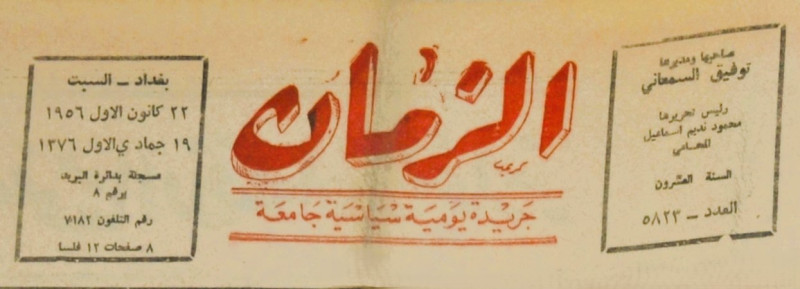 صاحبها ومديرها
توفيق السمعاني
رئيس تحريرها
محمود نديم اسماعيل
المحامي
السنة العشرون
العدد ــ ٥٨٢٣
الزمان
جريدة يومية سياسية جامعة
بغداد ــ السبت
٢٢ كانون الاول ١٩٥٦
١٩ جمادي الاول ١٣٧٦
مسجلة بدائرة البريد
برقم ٨
رقم التلفون ٧١٨٢
٨ صفحات ١٢ فلسا